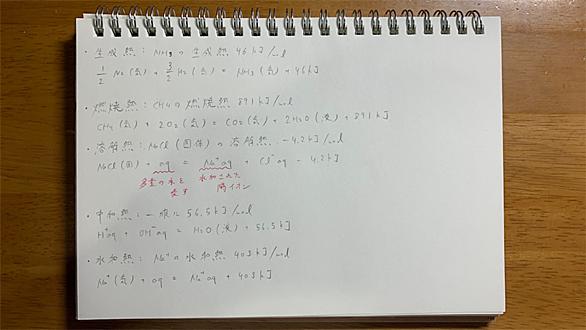 ・生成熱：NH₃の生成熱 46kJ/mol
1/2 N₂(気) + 3/2 H₂(気) = NH₃(気) + 46kJ
・燃焼熱：CH₄の燃焼熱 891kJ/mol
CH₄(気) + 2O₂(気) = CO₂(気) + 2H₂O(液) + 891kJ
・溶解熱：NaCl(固体)の溶解熱 -4.2kJ/mol
NaCl(固) + aq = Na⁺aq + Cl⁻aq - 4.2kJ
多量の水を 水和された
表す 陽イオン
・中和熱：一般に 56.5kJ/mol
H⁺aq + OH⁻aq = H₂O(液) + 56.5kJ
・水和熱：Na⁺の水和熱 403kJ/mol
Na⁺(気) + aq = Na⁺aq + 403kJ